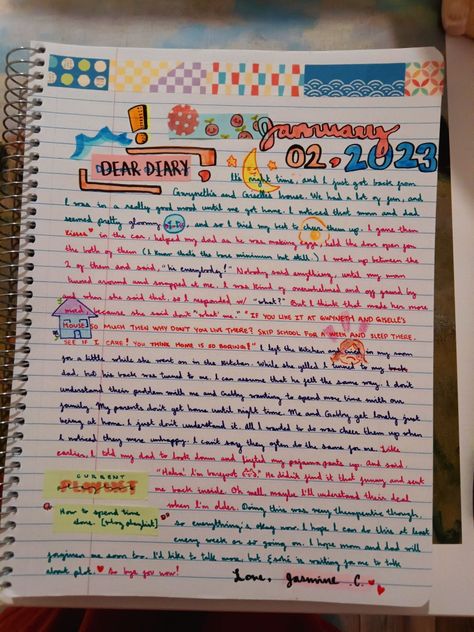 January
02, 2023
DEAR DIARY
It's night time, and I just got back from
Gwyneth's and Giselle's house. We had a lot of fun, and
I was in a really good mood until we got home. I noticed that mom and dad
seemed pretty gloomy and so I tried my best to cheer them up. I gave them
kisses in the car, helped my dad as he was making eggs, held the door open for
the both of them (I know that's the bare minimum but still.) I went up between the
2 of them and said, "hi everybody!" Nobody said anything, until my mom
turned around and snapped at me. I was kind of overwhelmed and off guard by
when she said that, so I responded w/ "what?" But I think that made her more
mad because she said don't "what" me." "IF YOU LIKE IT AT GWYNETH AND GISELLE'S
HOUSE SO MUCH THEN WHY DON'T YOU LIVE THERE? SKIP SCHOOL FOR A WEEK AND SLEEP THERE.
SEE IF I CARE! YOU THINK HOME IS SO BORING!" I left the kitchen and my mom
for a little while she went on in the kitchen. While she yelled I turned to my
dad, but his back was turned to me. I can assume that he felt the same way. I don't
understand their problem with me and Gabby wanting to spend more time with our
family. My parents don't get home until night time. Me and Gabby get lonely just
being at home. I just don't understand it. All I wanted to do was cheer them up when
I noticed they were unhappy. I can't say they often do the same for me. Like
earlier, I told my dad to look down and lifted my pajama pants up. And said,
"Haha! I'm barefoot" He didn't find it that funny and sent
me back inside. Oh well, maybe I'll understand their deal
when I'm older. Doing this was very therapeutic though,
so everything's okay now. I hope I can do this at least
every week or so going on. I hope mom and dad will
forgive me soon too. I'd like to talk more, but is waiting for me to talk
about plot. So bye for now!
Love, Jasmine C.
CURRENT
PLAYLIST
How to spend time
alone. [vlog playlist]